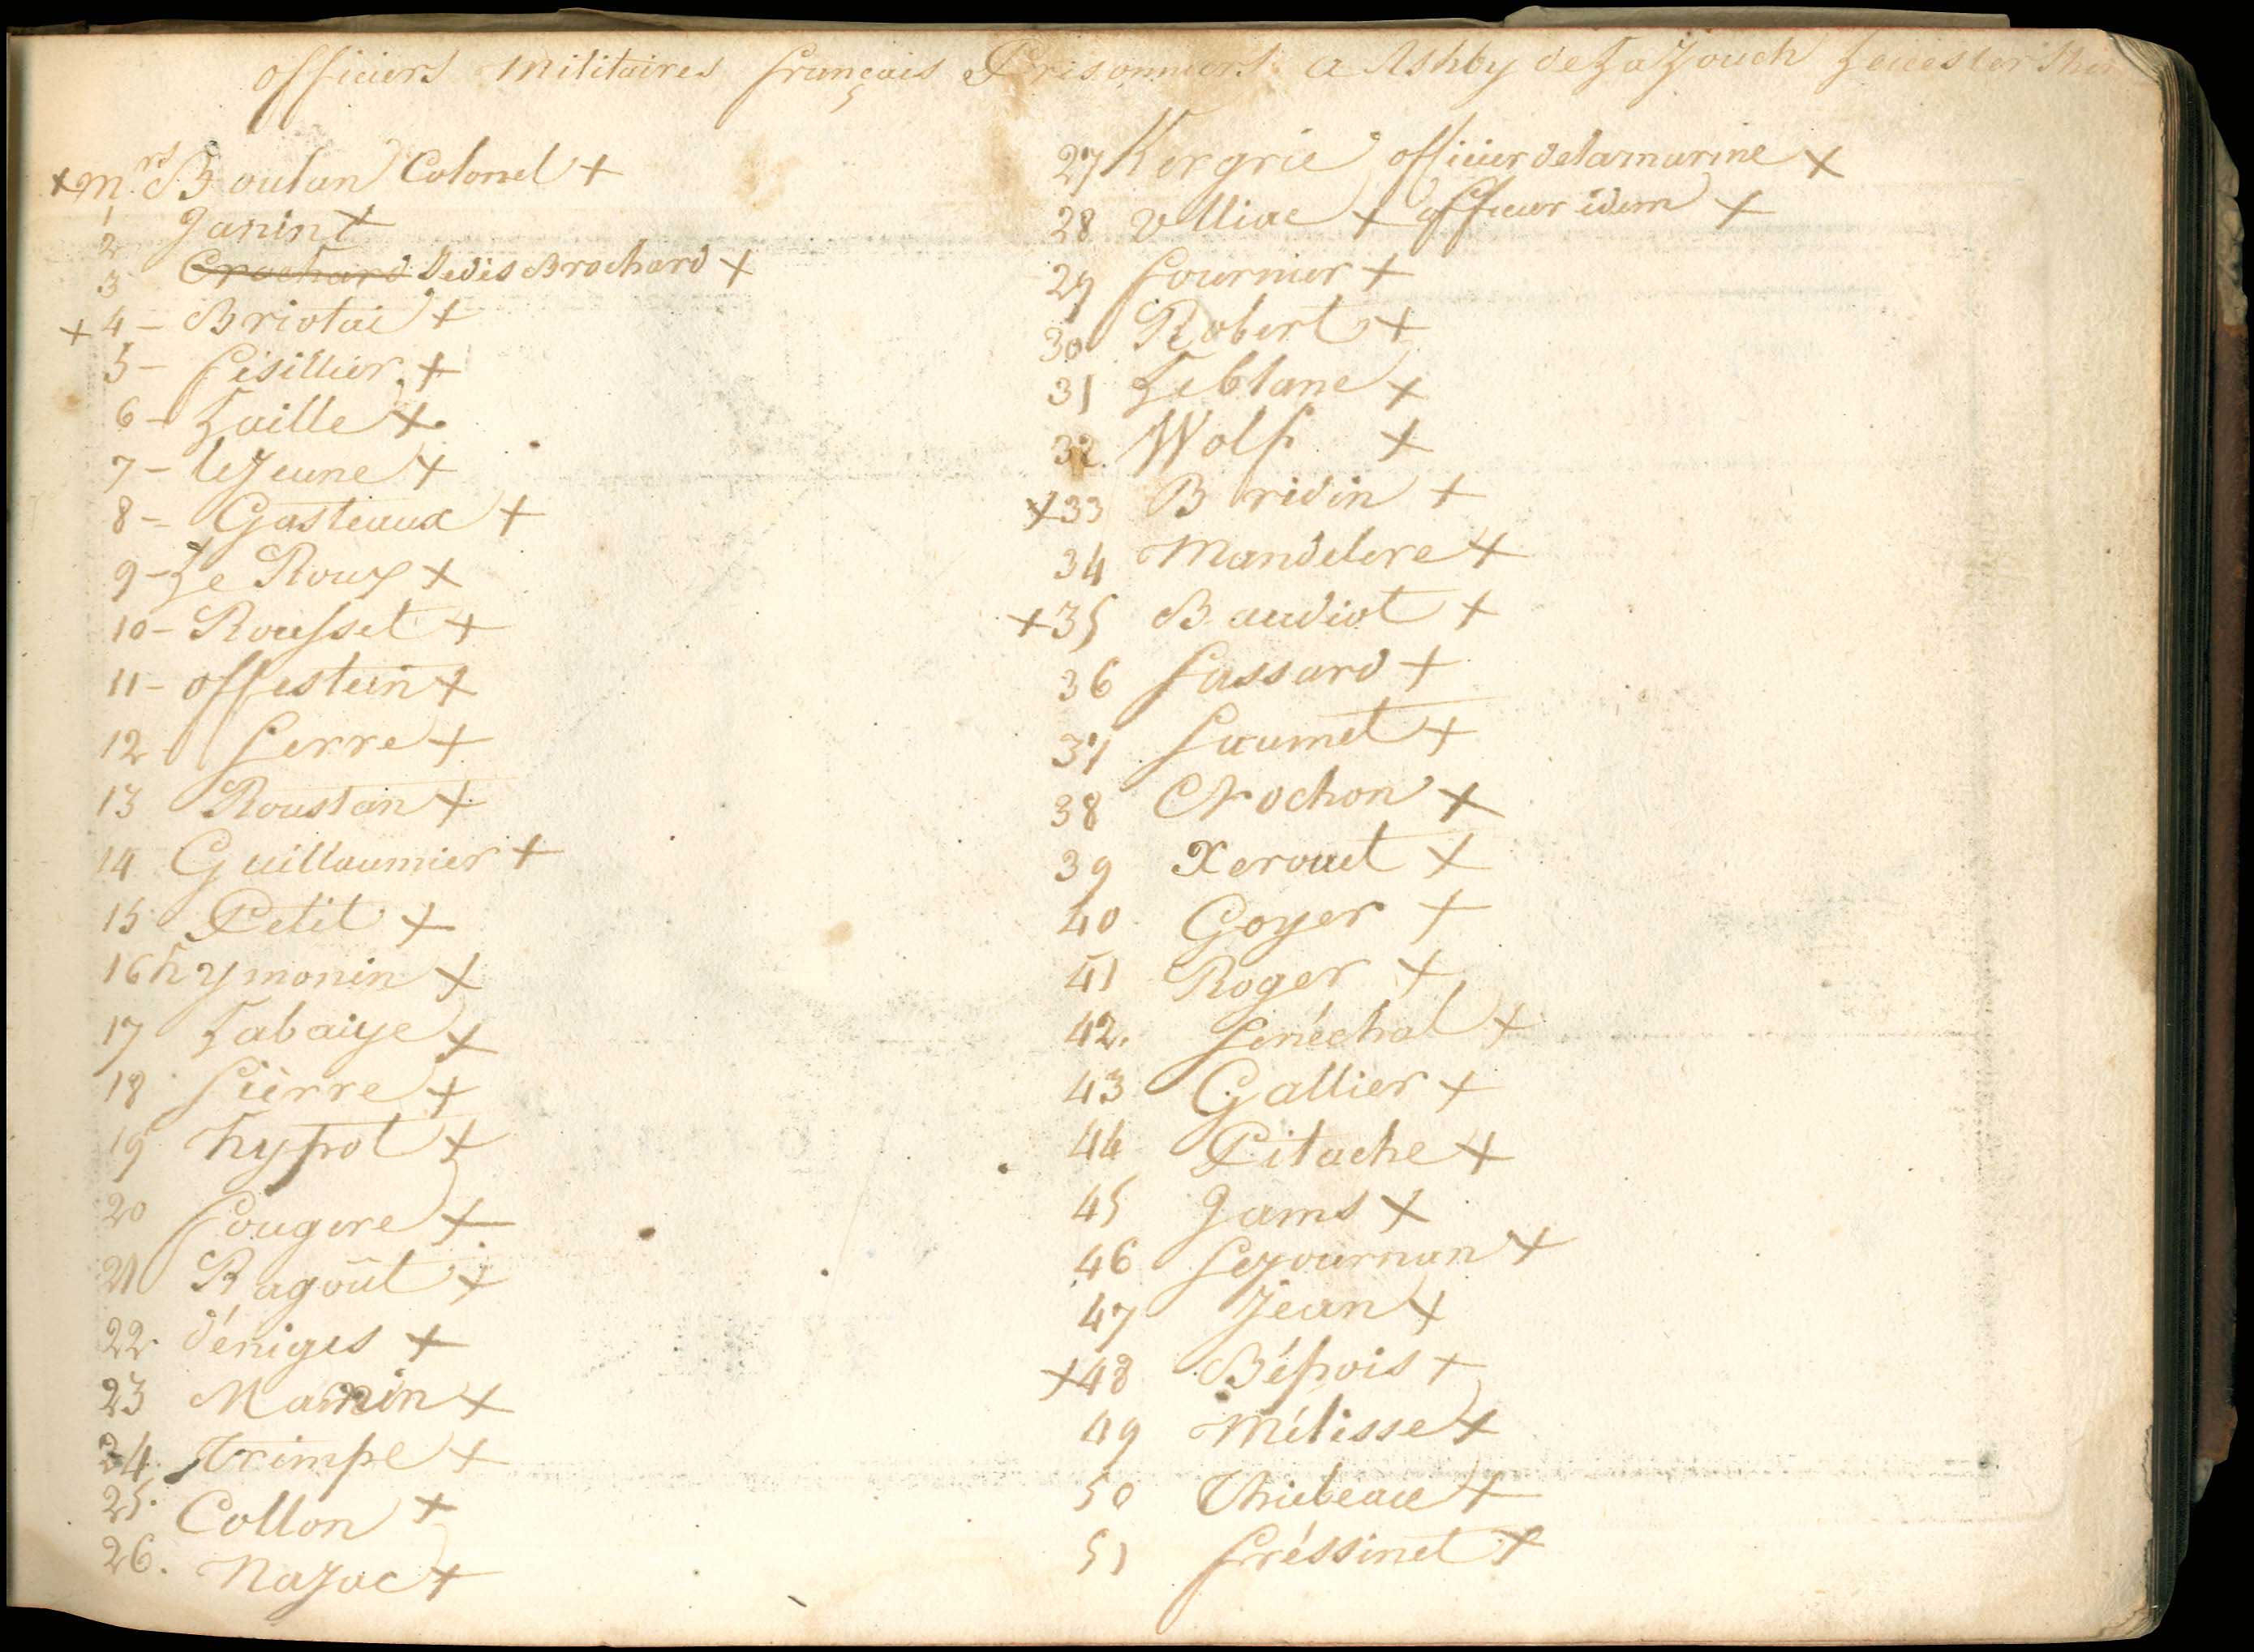 officiers militaires français Prisonniers a Ashby de La Zouch Leicester Shir
+ Mrs Boulan Colonel +
1
2 Janin +
3 Crochard Dedis Brochard +
+ 4 – Briotai +
5 – fisillier +
6 – Laille +
7 – leJeune +
8 – Gasteaux +
9 – Le Roux +
10 – Rousset +
11 – offestein +
12 ferre +
13 Roustan +
14 Guillaumier +
15 Petit +
16 hymonin +
17 Labaiye +
18 fièrre +
19 hypot +
20 fougere +
21 Ragoût +
22 déniges +
23 Mannin +
24. Strimpe +
25. Collon +
26. NaJac +
27 Kergrie officier de la marine +
28 vlliac + officier idem +
29 fournier +
30 Robert +
31 Leblanc +
32. Wolf +
+ 33 Bridin +
34 Mandelere +
+ 35 Baudiot +
36 fassard +
37 faumet +
38 Crochon +
39 Xerouet +
40 Goyer +
41 Roger +
42. Sénéchal +
43 Gallier +
44 Pitache +
45 Jams +
46 Sejournan +
47 Jean +
+ 48 Béfrois +
49 Mélisse +
50 Thiebeaux +
51 fréssinet +